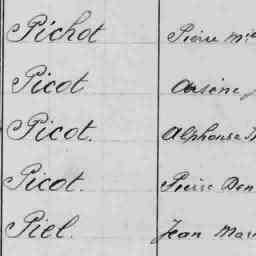 Pichot Pierre
Picot Arsène
Picot. Alphonse
Picot. Pierre
Piel. Jean